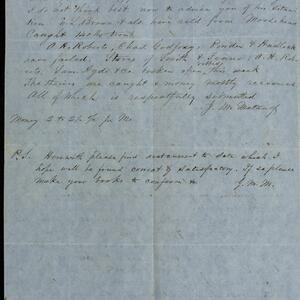 I do not think best now to advise you of his situa
tion. Wm Brown & ads have sold from Woodshins
Caught
A. H. Roberts, Chas. Godfrey, Ponder &
have failed. Stores of South & A. H. Rob
erts, Van Hyde & Co broken open this week
The thieves are caught & money mostly recovered
All of which is respectfully submitted
J. M.
Money 2 to 2½ % pr Mo.
P.S. Herewith please find statement to date which I
hope will be found correct & satisfactory. If so please
make your books to conform &c
J. M. M.